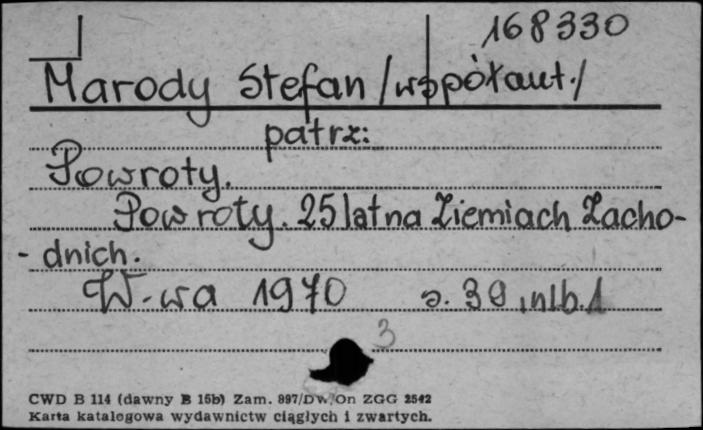 168330
Marody Stefan /współaut./
patrz:
Powroty.
Powroty. 25 lat na Ziemiach Zacho-
- dnich.
W-wa 1970 s. 39, nlb. 1
3
CWD B 114 (dawny B 15b) Zam. 897/DW/On ZGG 2542
Karta katalogowa wydawnictw ciągłych i zwartych.